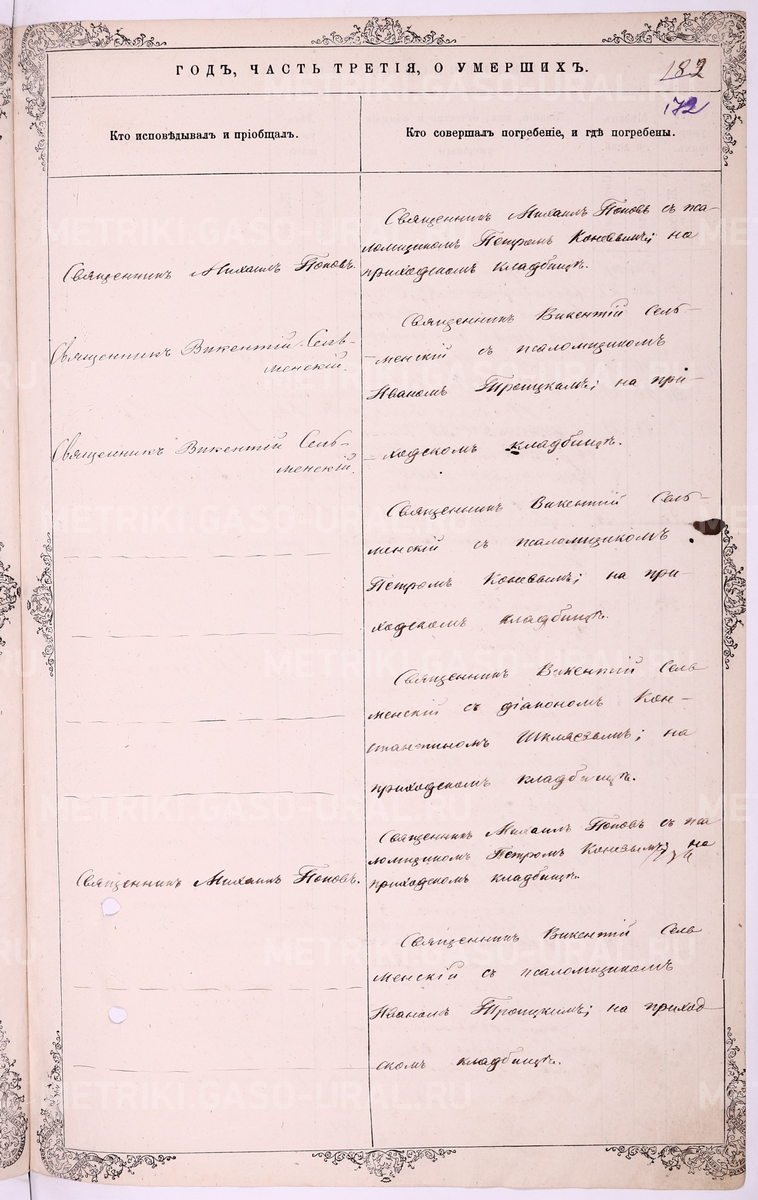 ГОДЪ, ЧАСТЬ ТРЕТІЯ, О УМЕРШИХЪ.
182
172
Кто исповѣдывалъ и пріобщалъ.
Кто совершалъ погребеніе, и гдѣ погребены.
Священникъ Михаилъ Поповъ.
Священникъ Михаилъ Поповъ съ пса-
ломщикомъ Петромъ Коневымъ; на
приходскомъ кладбищѣ.
Священникъ Викентій Сель-
менскій.
Священникъ Викентій Сель-
менскій съ псаломщикомъ
Иваномъ Троицкимъ; на при-
Священникъ Викентій Сель-
менскій.
ходскомъ кладбищѣ.
Священникъ Викентій Сель-
менскій съ псаломщикомъ
Петромъ Коневымъ; на при-
ходскомъ кладбищѣ.
Священникъ Викентій Сель
менскій съ діакономъ Кон-
стантиномъ Шкляевымъ; на
приходскомъ кладбищѣ.
Священникъ Михаилъ Поповъ.
Священникъ Михаилъ Поповъ съ пса
ломщикомъ Петромъ Коневымъ; на
приходскомъ кладбищѣ.
Священникъ Викентій Сель
менскій съ псаломщикомъ
Иваномъ Троицкимъ; на приход
скомъ кладбищѣ.
METRIKI.GASO-URAL.RU